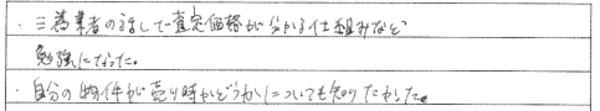 ・三為業者の話しで査定価格が分かる仕組みなど
勉強になった。
・自分の物件が売り時かどうかについても知りたかった。